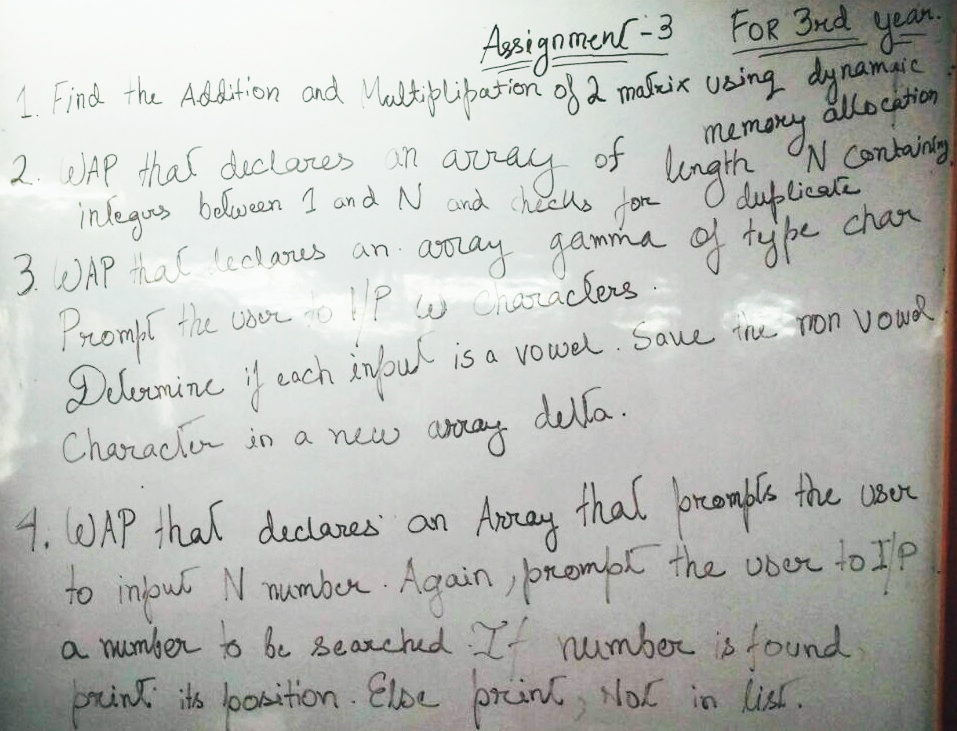 Assignment-3 FOR 3rd year.
1. Find the Addition and Multiplipation of 2 matrix using dynamaic
memory allocation
2. WAP that declares an array of length N containing
integers between 1 and N and checks for duplicate
3. WAP that declares an array gamma of type char
Prompt the user to I/P characters.
Determine if each input is a vowel. Save the non vowel
Character in a new array delta.
4. WAP that declares an Array that prompts the user
to input N number. Again, prompt the user to I/P
a number to be searched. If number is found
print its position. Else print, Not in list.